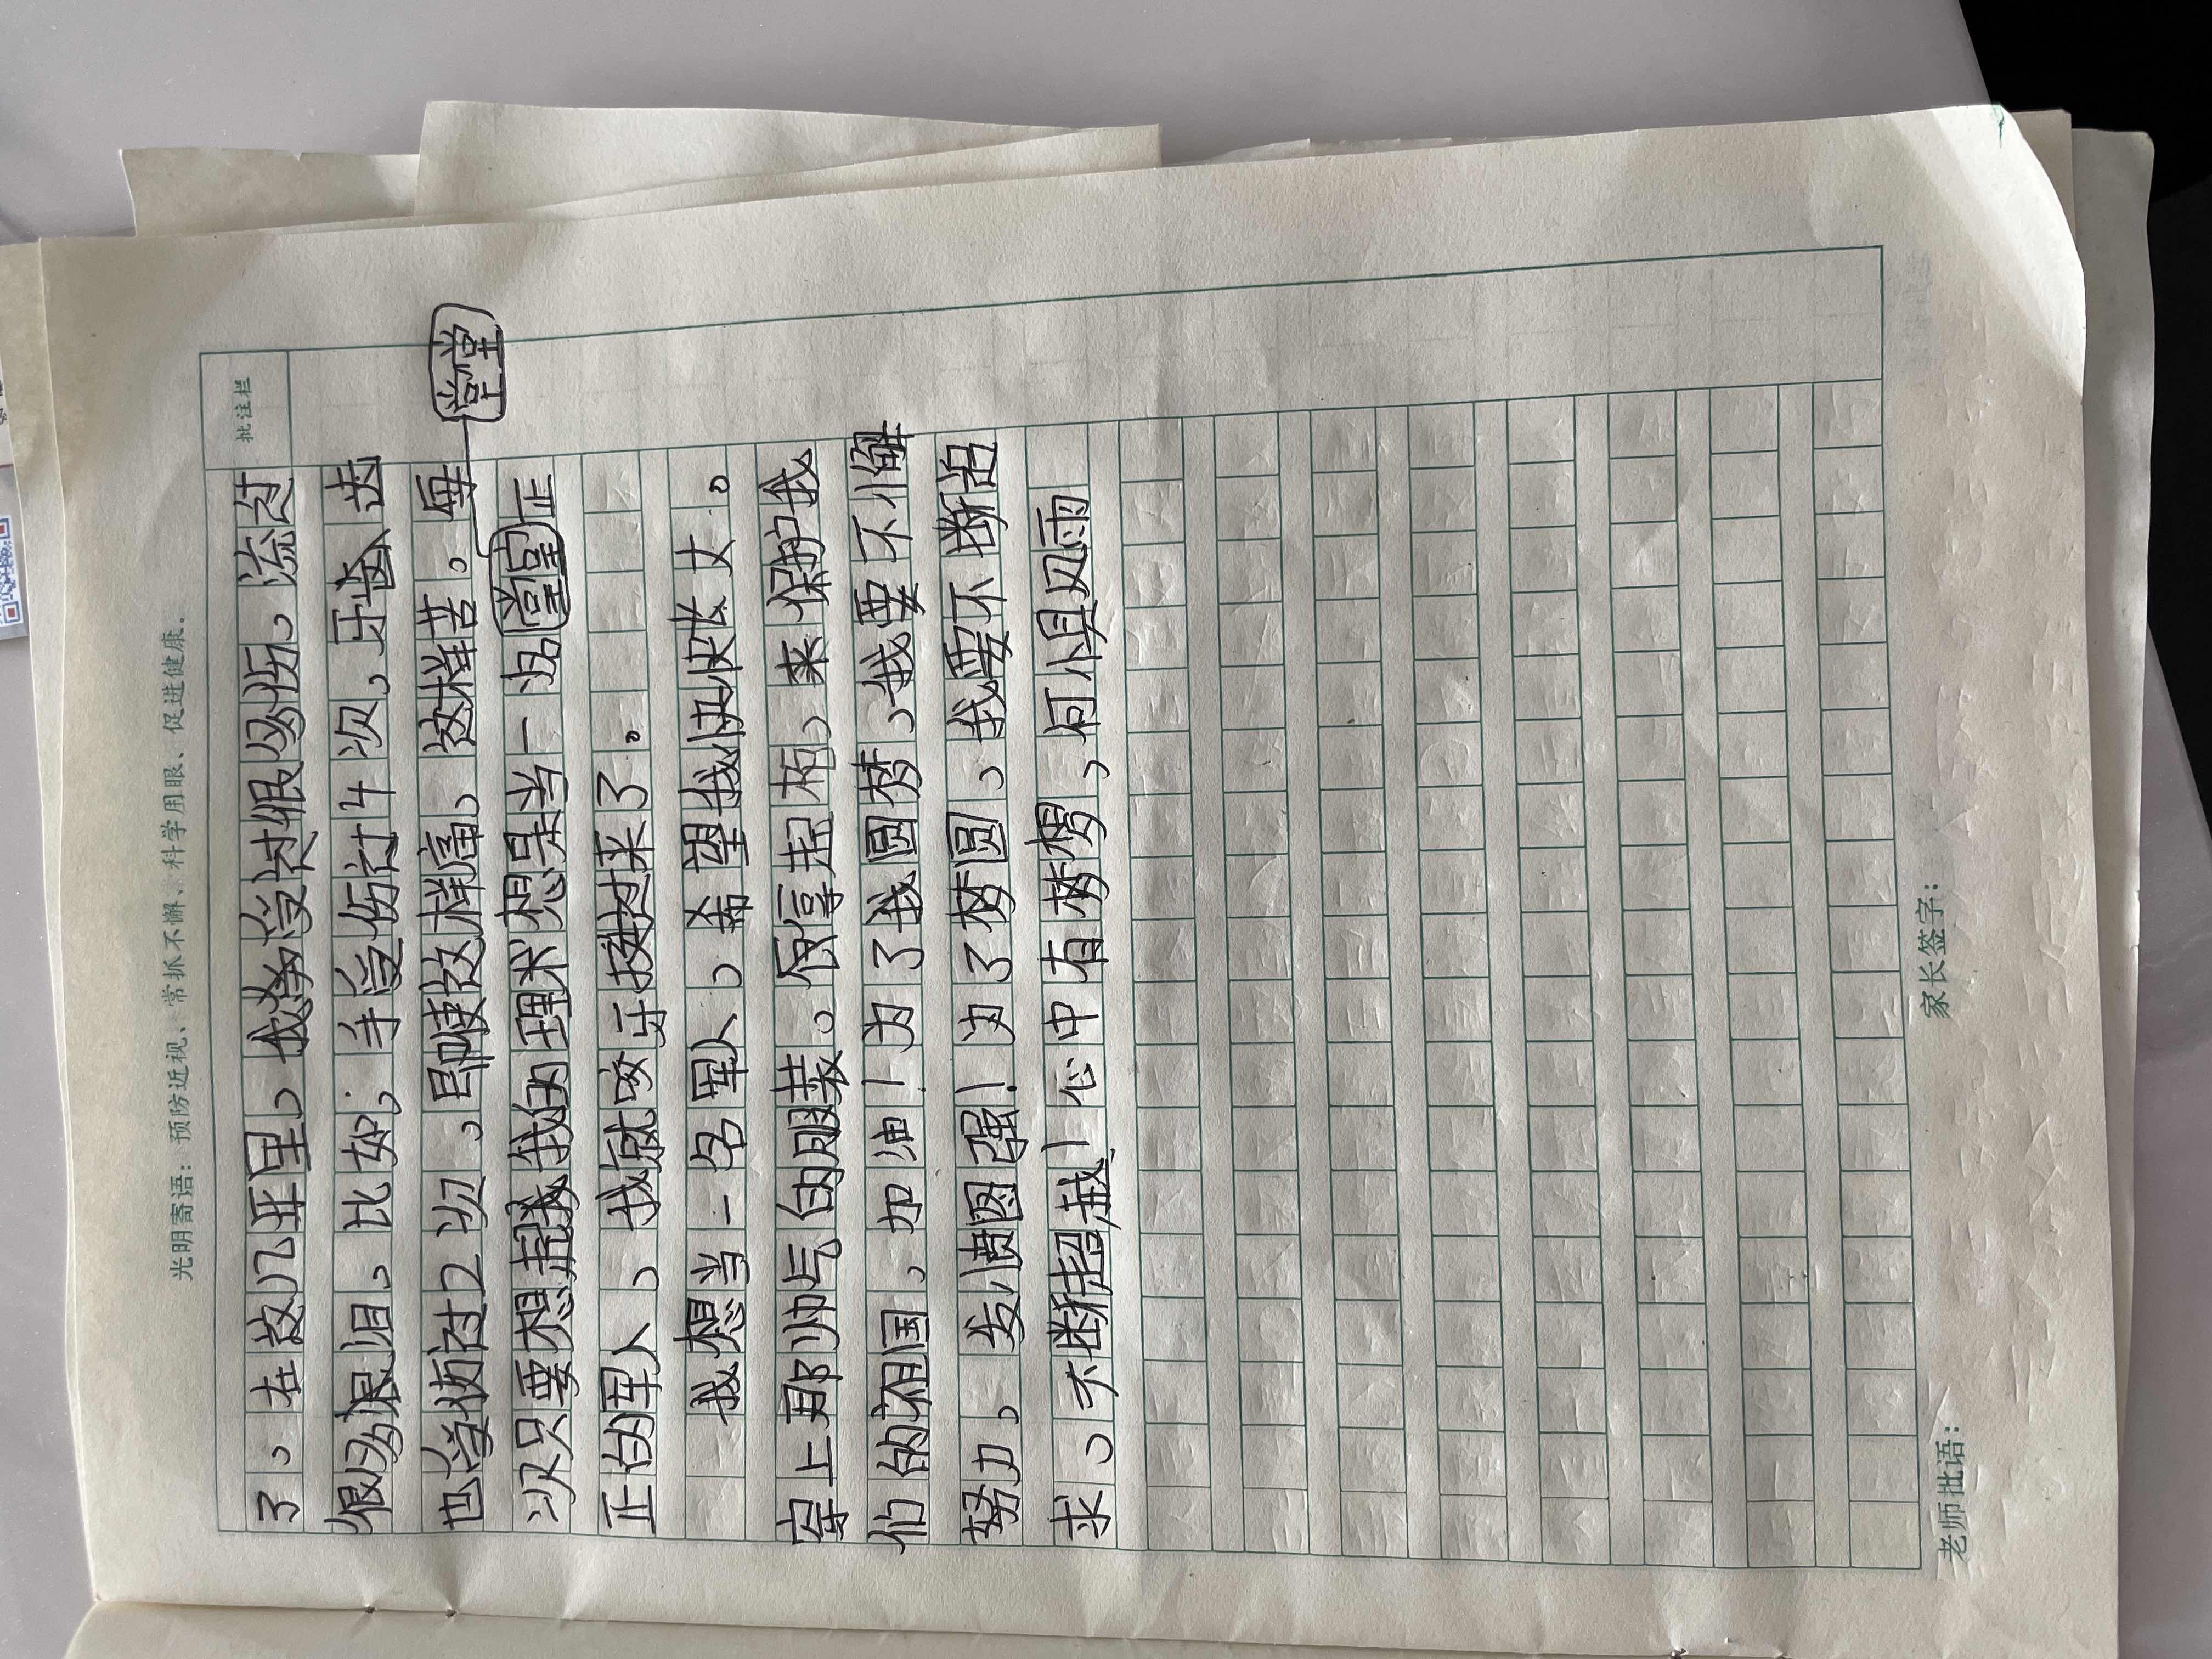 光明寄语：预防近视、常抓不懈、科学用眼、促进健康。
批注栏
了。在这几年里，我多受过很多伤，流过
很多泪，比如：手受伤过4次，牙齿进
也受伤过2次，即使这样痛，这样苦，每
堂堂
次只要想起我的理术想是当一名堂堂正
正的军人，我就咬牙挨过来了。
我想当一名军人，希望我快快长大。
穿上那帅气的服装。保拿起枪，来保护我
们的祖国，加油！为了我圆梦，我要不懈
努力，发愤图强！为了梦圆，我要不断的
求，不断超越！心中有梦想，何惧风雨
老师批语：
家长签字：